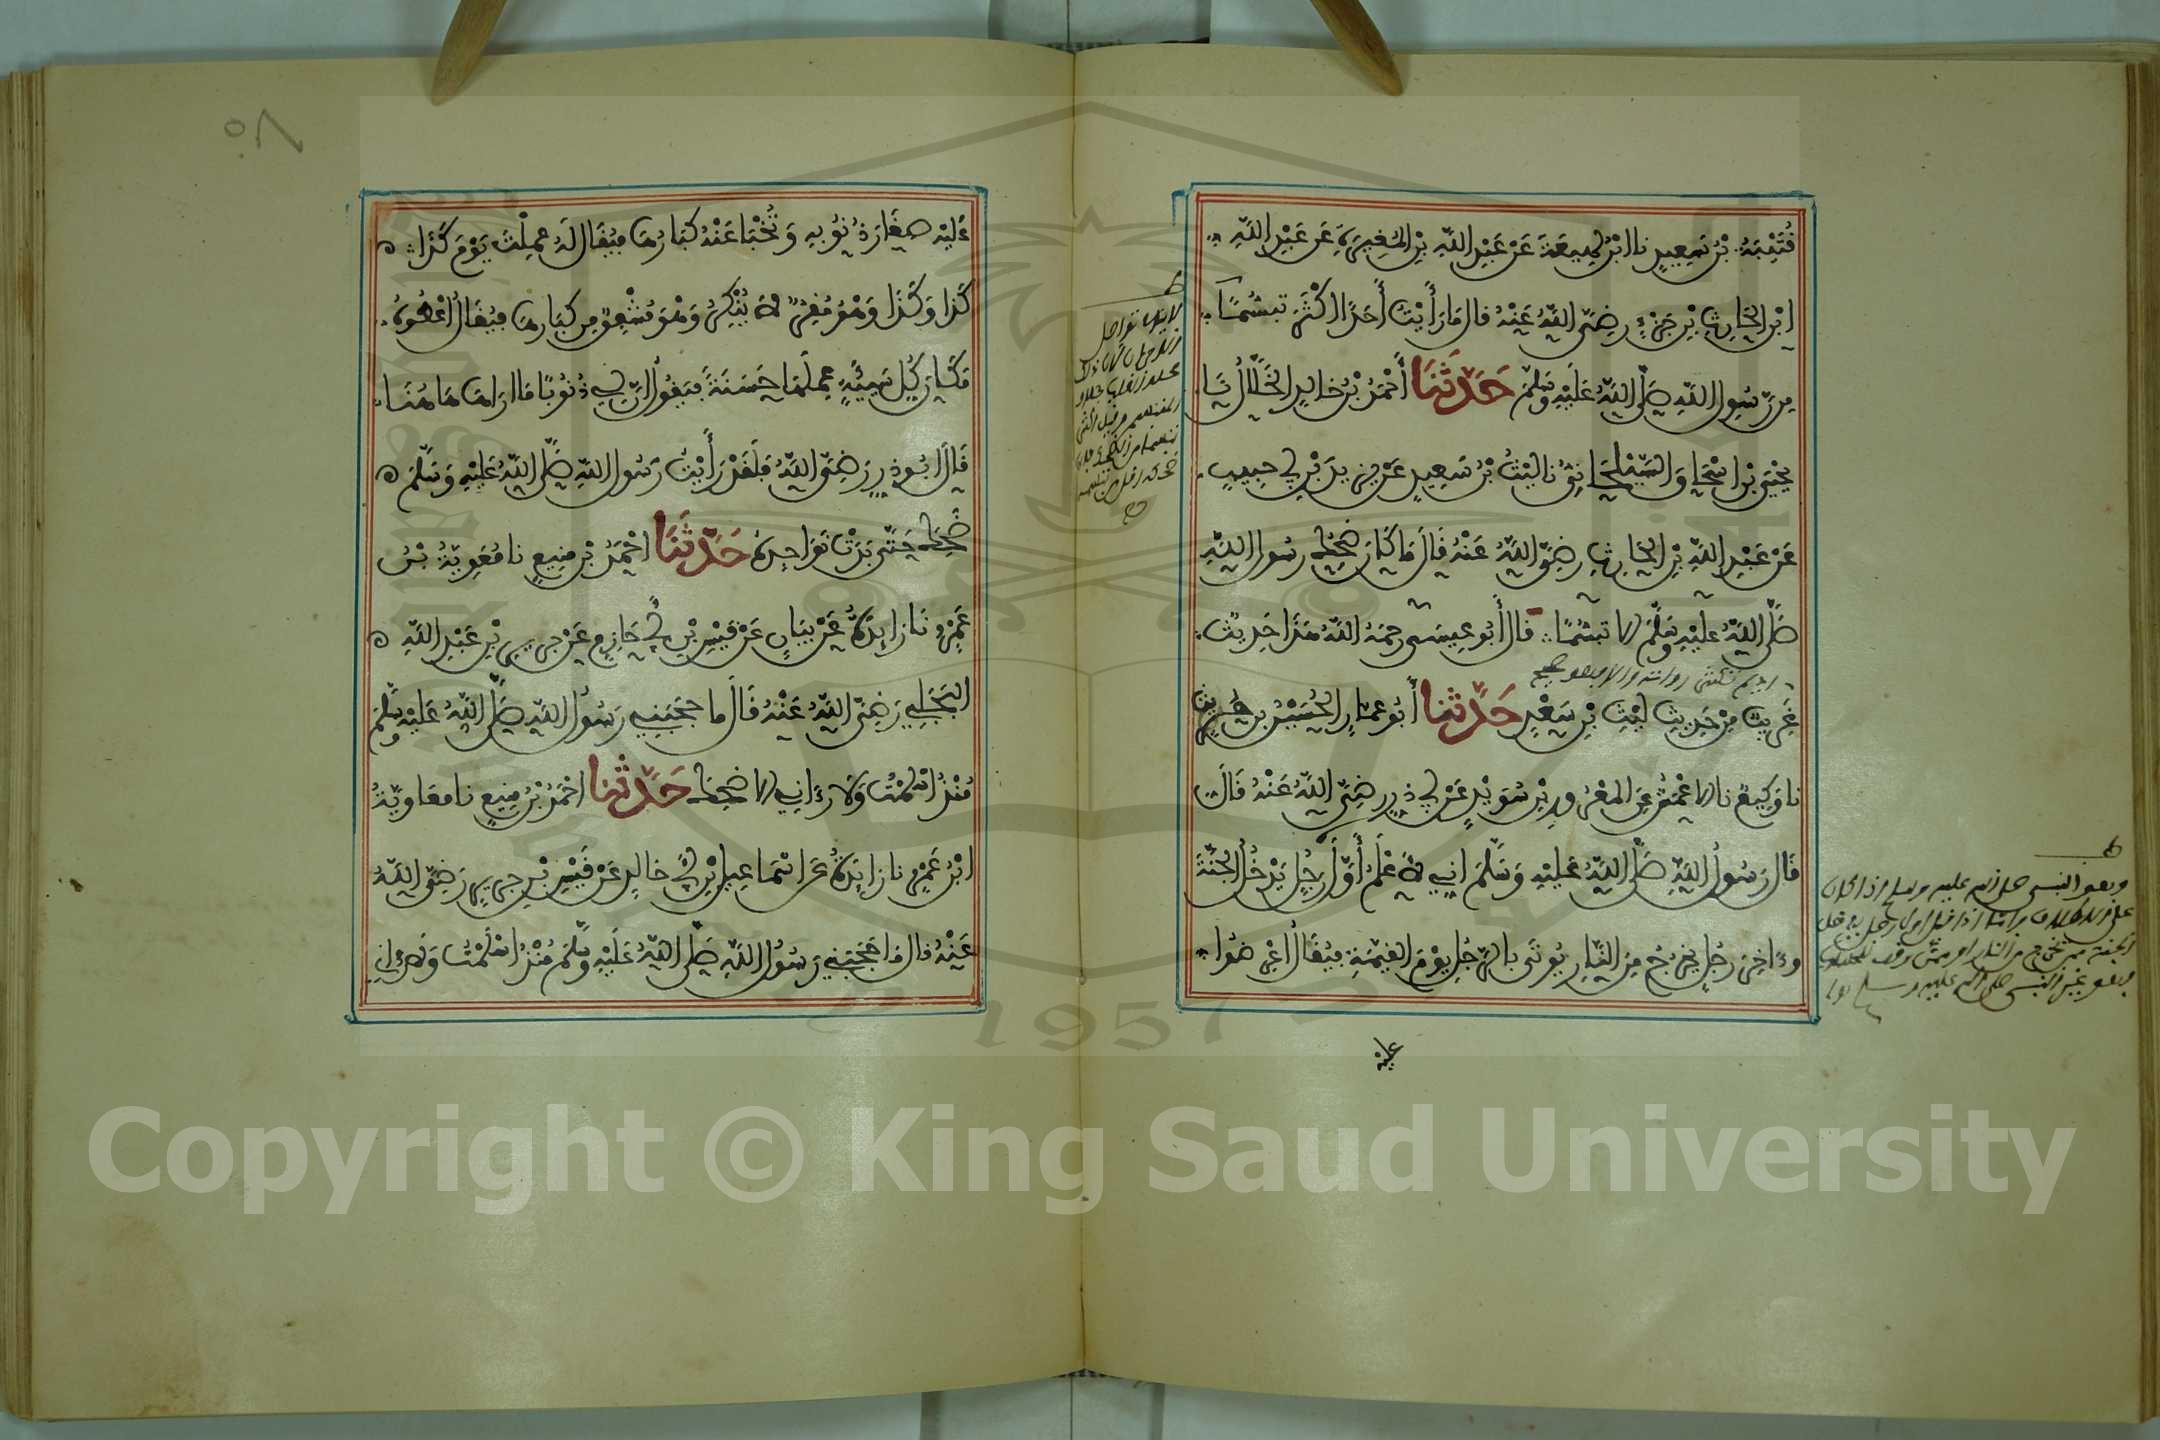 قُتَيْبَةُ بْنُ سَعِيدٍ نا ابْنُ لَهِيعَةَ عَنْ عَبْدِ اللَّهِ بْنِ الْمُغِيرَةِ عَنْ عَبْدِ اللَّهِ
ابْنِ الْحَارِثِ بْنِ جَزْءٍ رَضِيَ اللَّهُ عَنْهُ قَالَ مَا رَأَيْتُ أَحَدًا أَكْثَرَ تَبَسُّمًا
مِنْ رَسُولِ اللَّهِ صَلَّى اللَّهُ عَلَيْهِ وَسَلَّمَ حَدَّثَنَا أَحْمَدُ بْنُ خَالِدٍ الْخَلَّالُ نا
يَحْيَى بْنُ إِسْحَاقَ السَّيْلَحَانِيُّ نا لَيْثُ بْنُ سَعِيدٍ عَنْ يَزِيدَ بْنِ أَبِي حَبِيبٍ
عَنْ عَبْدِ اللَّهِ بْنِ الْحَارِثِ رَضِيَ اللَّهُ عَنْهُ قَالَ مَا كَانَ ضَحِكُ رَسُولِ اللَّهِ
صَلَّى اللَّهُ عَلَيْهِ وَسَلَّمَ إِلَّا تَبَسُّمًا قَالَ أَبُو عِيسَى رحمَهُ اللَّهُ هَذَا حَدِيثٌ
غَرِيبٌ مِنْ حَدِيثِ لَيْثِ بْنِ سَعْدٍ حَدَّثَنَا أَبُو عَمَّارٍ الْحُسَيْنُ بْنُ حُرَيْثٍ
نا وَكِيعٌ نا الأَعْمَشُ عَنِ الْمَعْرُورِ بْنِ سُوَيْدٍ عَنْ أَبِي ذَرٍّ رَضِيَ اللَّهُ عَنْهُ قَالَ
قَالَ رَسُولُ اللَّهِ صَلَّى اللَّهُ عَلَيْهِ وَسَلَّمَ إِنِّي لَأَعْلَمُ أَوَّلَ رَجُلٍ يَدْخُلُ الْجَنَّةَ
وَءَاخِرَ رَجُلٍ يَخْرُجُ مِنَ النَّارِ يُوتَى بِالرَّجُلِ يَوْمَ الْقِيَمَةِ فَيُقَالُ اعْرِضُوا
عليه
٥٨
عَلَيْهِ صِغَارَ ذُنُوبِهِ وَتُخْبَأُ عَنْهُ كِبَارُهَا فَيُقَالُ لَهُ عَمِلْتَ يَوْمَ كَذَا
كَذَا وَكَذَا وَهْوَ مُقِرٌّ لَا يُنْكِرُ وَهْوَ مُشْفِقٌ مِنْ كِبَارِهَا فَيُقَالُ أَعْطُوهُ
مَكَانَ كُلِّ سَيِّئَةٍ عَمِلَهَا حَسَنَةً فَيَقُولُ إِنَّ لِي ذُنُوبًا مَا أَرَاهَا هَاهُنَا
قَالَ أَبُو ذَرٍّ رَضِيَ اللَّهُ فَلَقَدْ رَأَيْتُ رَسُولَ اللَّهِ صَلَّى اللَّهُ عَلَيْهِ وَسَلَّمَ
ضَحِكَ حَتَّى بَدَتْ نَوَاجِذُهُ حَدَّثَنَا أَحْمَدُ بْنُ مَنِيعٍ نا مُعَوِيَةُ بْنُ
عَمْرٍو نَا زَايِدَةُ عَنْ بَيَانٍ عَنْ قَيْسِ بْنِ أَبِي حَازِمٍ عَنْ جَرِيرِ بْنِ عَبْدِ اللَّهِ
الْبَجَلِيِّ رَضِيَ اللَّهُ عَنْهُ قَالَ مَا حَجَبَنِي رَسُولُ اللَّهِ صَلَّى اللَّهُ عَلَيْهِ وَسَلَّمَ
مُنْذُ أَسْلَمْتُ وَلَا رَءَانِي إِلَّا ضَحِكَ حَدَّثَنَا أَحْمَدُ بْنُ مَنِيعٍ نا مُعَاوِيَةُ
ابْنُ عَمْرٍو نا زَايِدَةُ عَنْ إِسْمَاعِيلَ بْنِ أَبِي خَالِدٍ عَنْ قَيْسٍ عَنْ جَرِيرٍ رَضِيَ اللَّهُ
عَنْهُ قَالَ مَا حَجَبَنِي رَسُولُ اللَّهِ صَلَّى اللَّهُ عَلَيْهِ وَسَلَّمَ مُنْذُ أَسْلَمْتُ وَلَا رَءَانِي
1957
Copyright © King Saud University